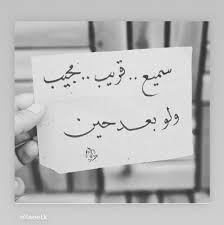 سميع .. قريب .. مجيب
ولو بعد حين